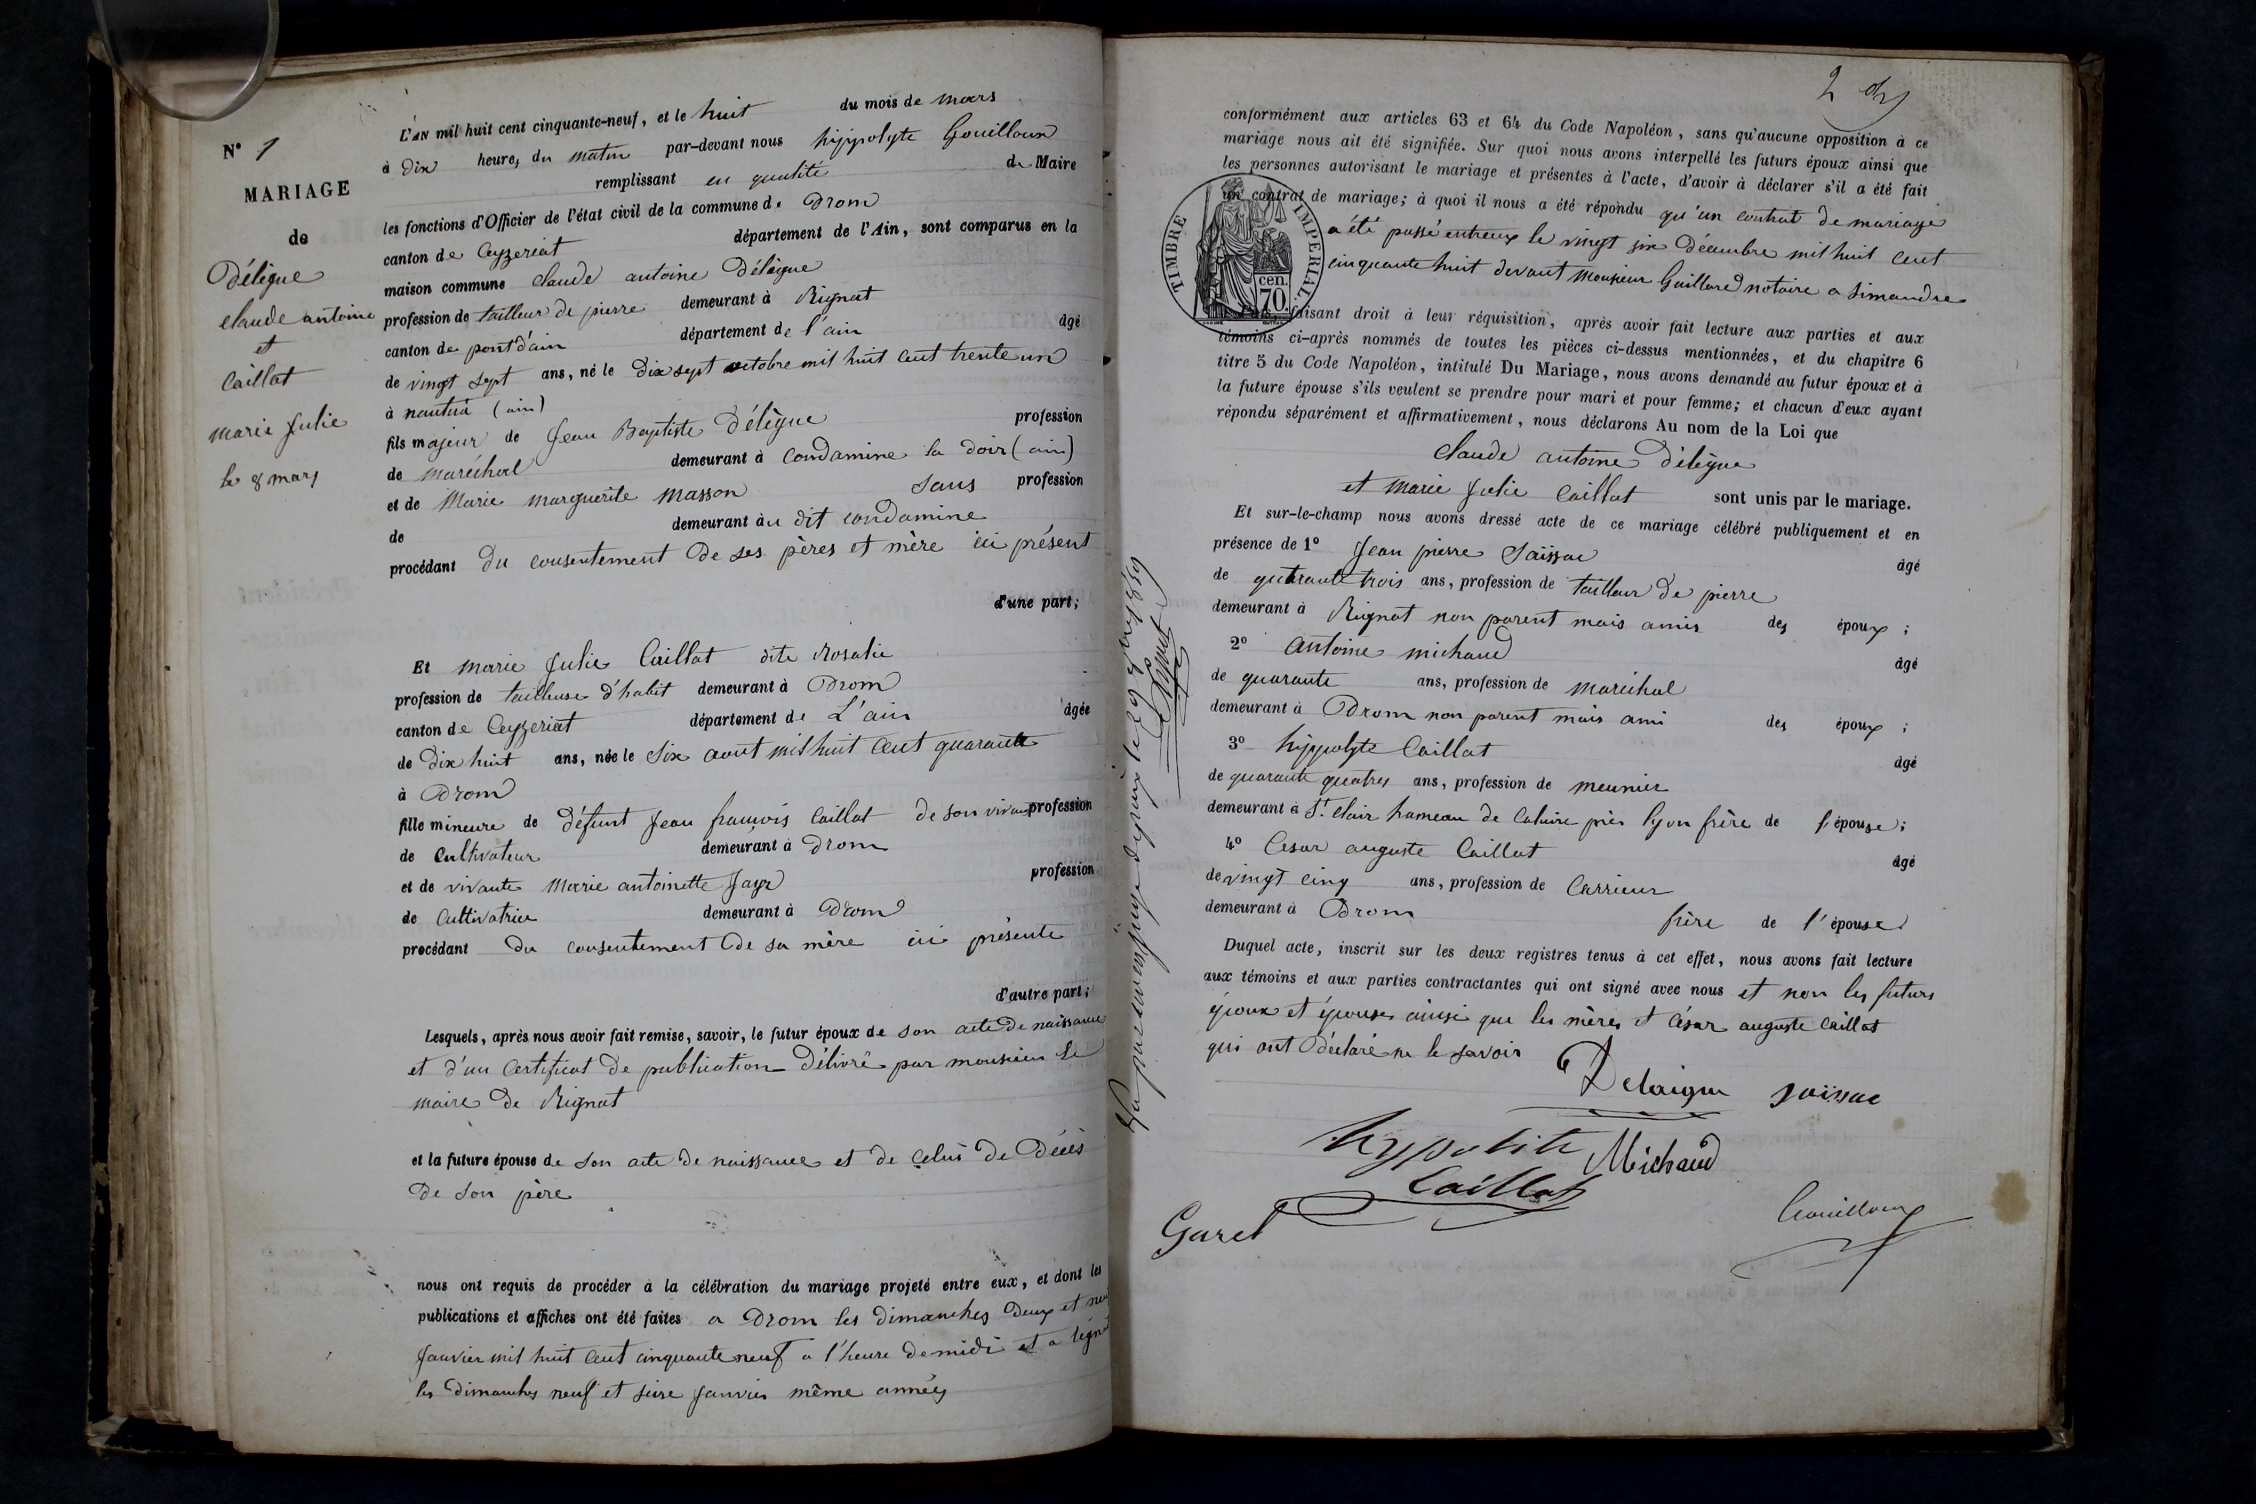 N° 1
MARIAGE
de
Délègue
claude antoine
et
Caillat
marie Julie
le 8 mars
L'AN mil huit cent cinquante-neuf, et le huit du mois de mars
à dix heures du matin par-devant nous hippolyte Gouilloux
remplissant en qualité de Maire
les fonctions d'Officier de l'état civil de la commune de Drom
canton de Ceyzeriat département de l'Ain, sont comparus en la
maison commune claude antoine Délègue
profession de tailleur de pierre demeurant à Rignat
canton de pont d'ain département de l'ain âgé
de vingt sept ans, né le dix sept octobre mil huit cent trente un
à nantua (ain)
fils majeur de Jean Baptiste Délègue profession
de maréchal demeurant à Condamine la doir (ain)
et de Marie marguerite masson sans profession
de demeurant au dit condamine
procédant du consentement de ses pères et mère ici présent
d'une part;
Et marie Julie Caillat dite Rosalie
profession de tailleuse d'habit demeurant à Drom
canton de Ceyzeriat département de L'ain âgée
de dix huit ans, née le six aout mil huit cent quarante
à Drom
fille mineure de défunt Jean françois Caillat de son vivant profession
de cultivateur demeurant à Drom
et de vivante Marie antoinette Jayr profession
de cultivatrice demeurant à Drom
procédant du consentement de sa mère ici présente
d'autre part;
Lesquels, après nous avoir fait remise, savoir, le futur époux de son acte de naissance
et d'un certificat de publication délivré par monsieur le
maire de Rignat
et la future épouse de son acte de naissance et de celui de décès
de son père
nous ont requis de procéder à la célébration du mariage projeté entre eux, et dont les
publications et affiches ont été faites a Drom les dimanches deux et neuf
Janvier mil huit cent cinquante neuf a l'heure de midi et a
les dimanches neuf et seize Janvier même années
2
conformément aux articles 63 et 64 du Code Napoléon, sans qu'aucune opposition à ce
mariage nous ait été signifiée. Sur quoi nous avons interpellé les futurs époux ainsi que
les personnes autorisant le mariage et présentes à l'acte, d'avoir à déclarer s'il a été fait
un contrat de mariage; à quoi il nous a été répondu qu'un contrat de mariage
a été passé entreux le vingt six décembre mil huit cent
cinquante huit devant monsieur Guillard notaire a Simandre
TIMBRE IMPERIAL.
cen. 70.
faisant droit à leur réquisition, après avoir fait lecture aux parties et aux
témoins ci-après nommés de toutes les pièces ci-dessus mentionnées, et du chapitre 6
titre 5 du Code Napoléon, intitulé Du Mariage, nous avons demandé au futur époux et à
la future épouse s'ils veulent se prendre pour mari et pour femme; et chacun d'eux ayant
répondu séparément et affirmativement, nous déclarons Au nom de la Loi que
claude antoine Délègue
et marie Julie Caillat sont unis par le mariage.
Et sur-le-champ nous avons dressé acte de ce mariage célébré publiquement et en
présence de 1° Jean pierre Saissac âgé
de quarante trois ans, profession de tailleur de pierre
demeurant à Rignat non parent mais amis des époux;
2° antoine michaud âgé
de quarante ans, profession de maréchal
demeurant à Drom non parent mais ami des époux;
3° hippolyte Caillat âgé
de quarante quatres ans, profession de meunier
demeurant à St. Clair hameau de Caluire près lyon frère de l'épouse;
4° Cesar auguste Caillat âgé
de vingt cinq ans, profession de Carrieur
demeurant à Drom frère de l'épouse
Duquel acte, inscrit sur les deux registres tenus à cet effet, nous avons fait lecture
aux témoins et aux parties contractantes qui ont signé avec nous et non les futurs
époux et épouse ainsi que les mères et césar auguste Caillat
qui ont déclaré ne le savoir
Delaigue Saissac
hyppolite Michaud
Caillat
Garel Gouilloux